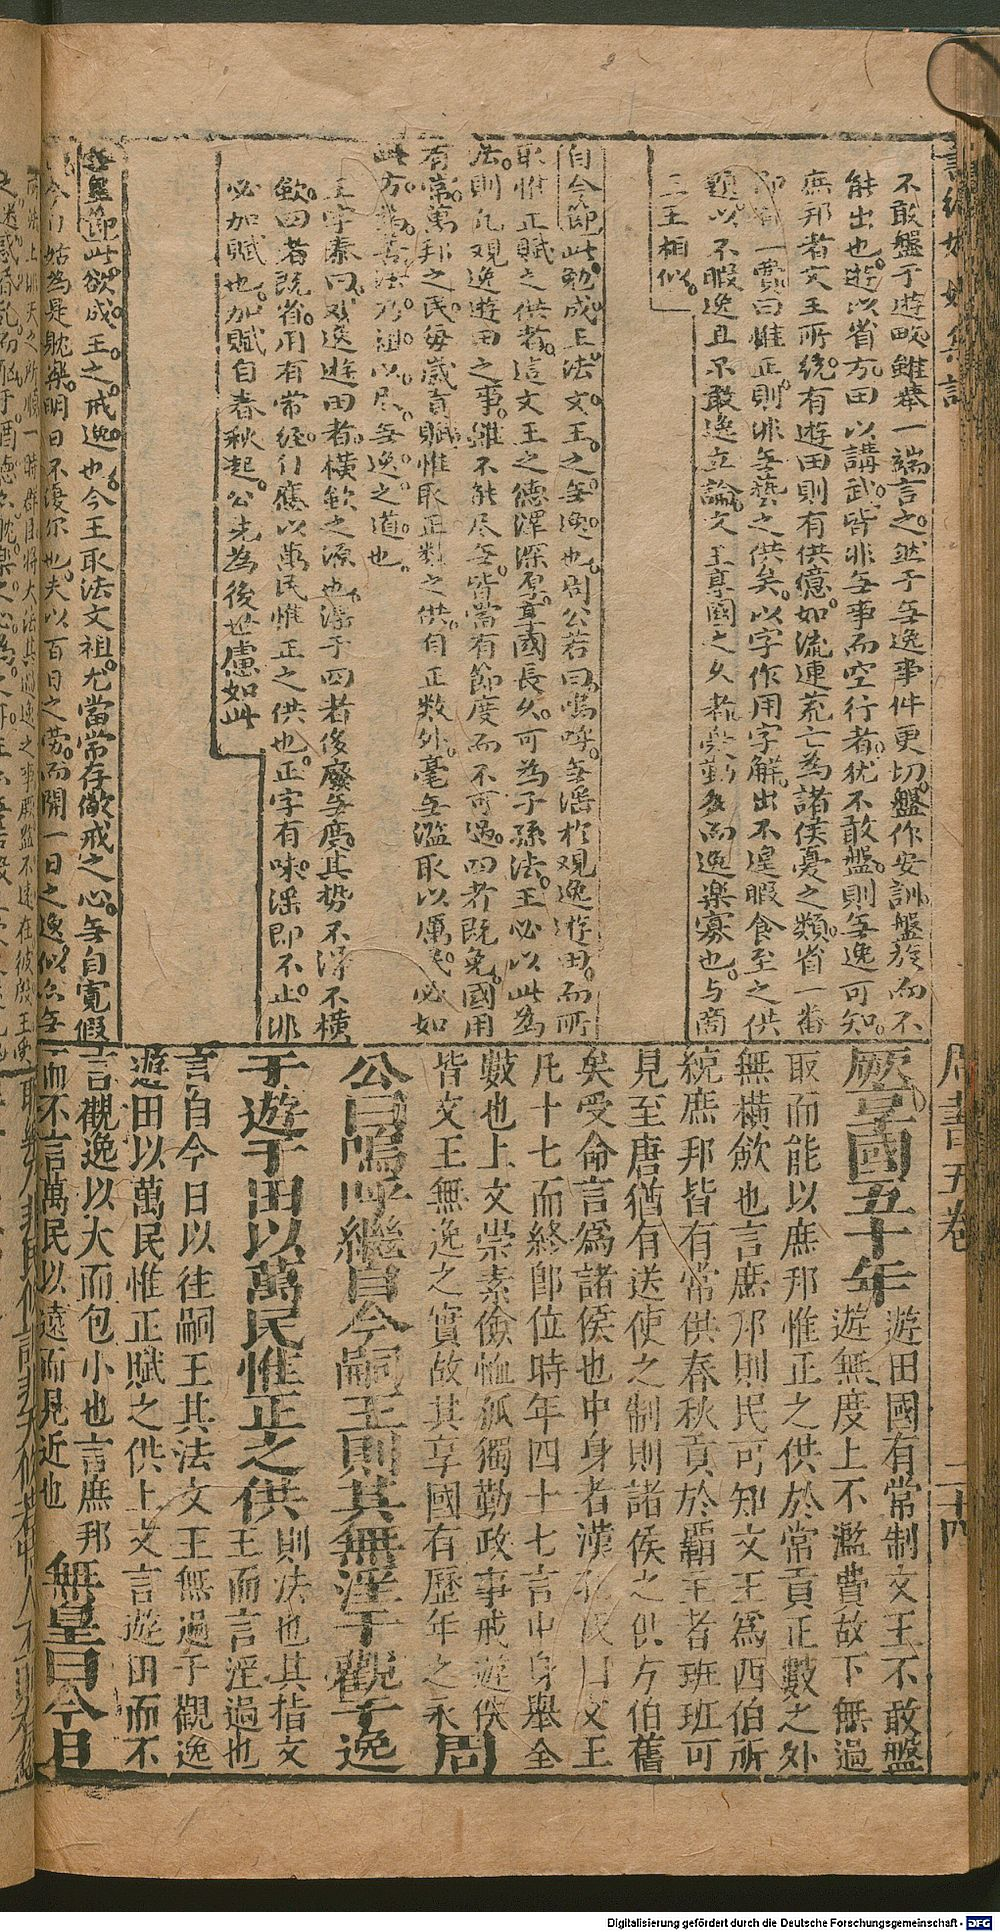 不敢盤于遊畋雖舉一端言之然于每逸事件更切盤作安訓盤旋而不
能出也遊以省方田以講武皆非每事而空行者犹不敢盤則每逸可知
庶邦者文王所統有遊田則有供億如流連荒亡為諸侯憂之類省一番
即省一費曰惟正則非每藝之供矣以字作用字解出不遑暇食至之供
題以不暇逸且不敢逸立論文王享國之久者
勤多而逸楽寡也与商
三王相似
自今節此勉成王法文王之每逸也周公若曰嗚呼每滛於覌逸遊田而所
取惟正賦之供者這文王之德澤深厚享國長久可為子孫法王必以此為
法則凡覌逸遊田之事雖不能尽每皆當有節度而不可過四者既免國用
有常萬邦之民每歲貢賦惟取正数之供自正数外毫每濫取以厲民必如
此方為善法乃祖以尽每逸之道也
王字泰曰覌逸遊田者横歛之源也滛于四者後廢每度其势不得不横
歛四者既省用有常経自應以萬民惟正之供也正字有味滛即不止非
必加賦也加賦自春秋起公先為後世慮如此
每皇節此欲成王之戒逸也今王取法文祖尤當常存儆戒之心每自寛假
周書五卷
二十四
厥享國五十年
遊田國有常制文王不敢盤
遊無度上不濫費故下無過
取而能以庶邦惟正之供於常貢正數之外
無橫歛也言庶邦則民可知文王爲西伯所
統庶邦皆有常供春秋貢於霸主者班班可
見至唐猶有送使之制則諸侯之供方伯舊
矣受命言爲諸侯也中身者漢孔氏曰文王
九十七而終卽位時年四十七言中身舉全
數也上文崇素儉恤孤獨勤政事戒遊佚
皆文王無逸之實故其享國有歷年之永
周
公曰嗚呼繼自今嗣王則其無淫于觀于逸
于遊于田以萬民惟正之供
則法也其指文
王而言淫過也
言自今日以往嗣王其法文王無過于觀逸
遊田以萬民惟正賦之供上文言遊田而不
言觀逸以大而包小也言庶邦
而不言萬民以遠而見近也
無皇曰今日
Digitalisierung gefördert durch die Deutsche Forschungsgemeinschaft - DFG